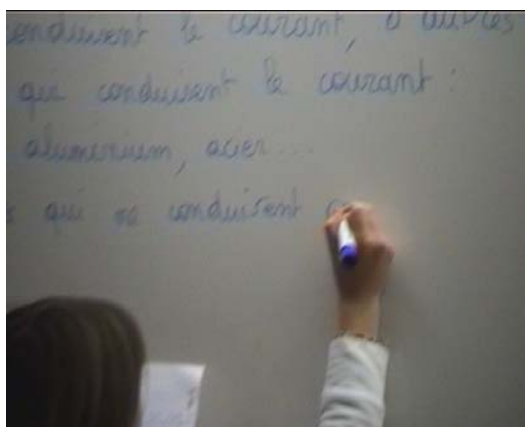 conduisent le courant, d'autres
qui conduisent le courant :
aluminium, acier...
qui ne conduisent